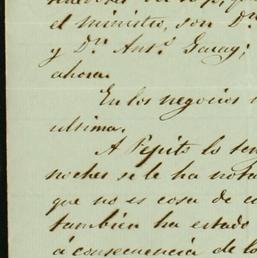 el ministro, son Dn.
y Dn. Anto. Garay;
ahora.
En los negocios
ultima.
A Pepito lo
noches se le ha nota
que no es cosa de
tambien ha estado
á consecuencia de lo